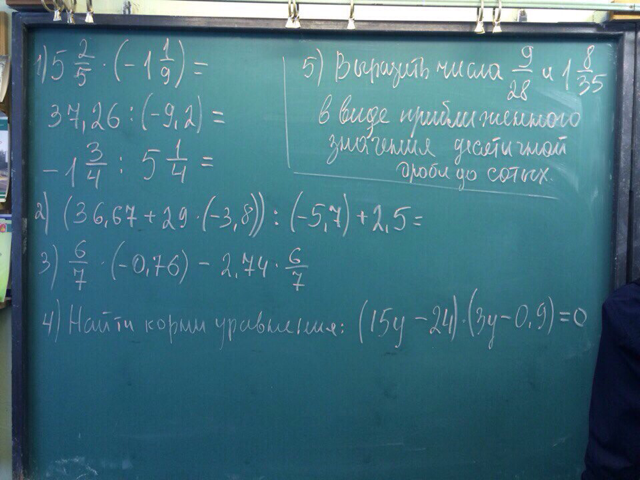 1) 5 2/5 · (-1 1/9) =
37,26 : (-9,2) =
-1 3/4 : 5 1/4 =
2) (36,67 + 29 · (-3,8)) : (-5,7) + 2,5 =
3) 6/7 · (-0,76) - 2,74 · 6/7
4) Найти корни уравнения: (15y - 24) · (3y - 0,9) = 0
5) Выразить числа 9/28 и 1 8/35
в виде приближенного
значения десятичной
дроби до сотых.